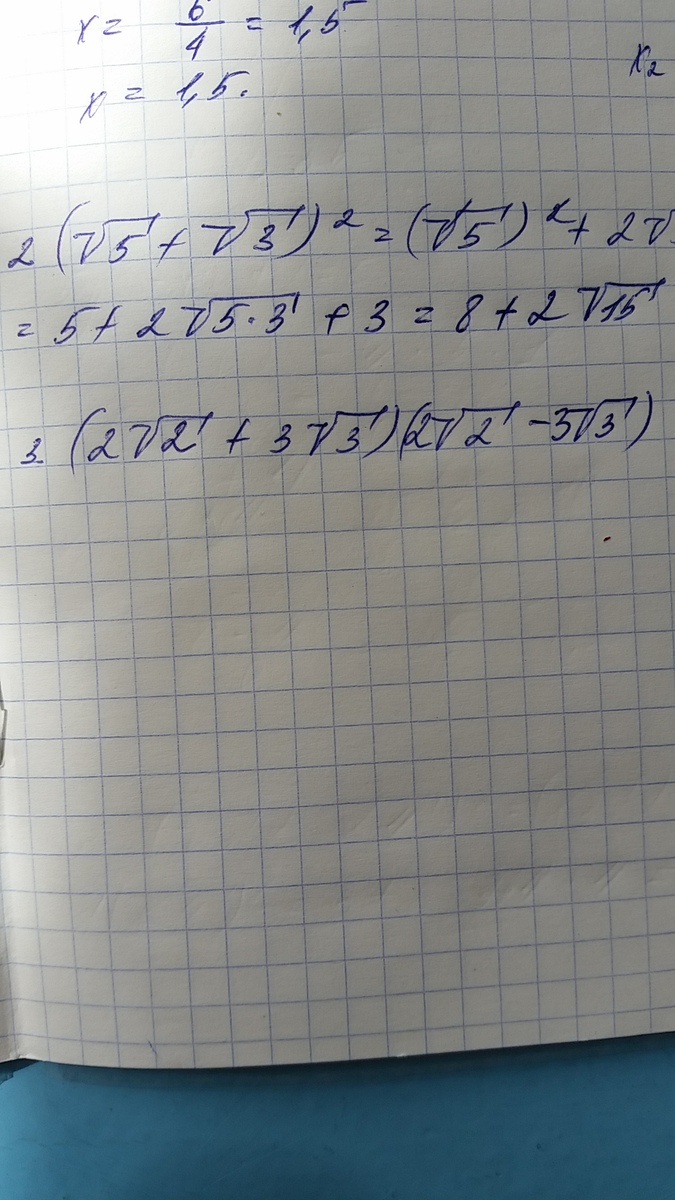 x = 6/4 = 1,5
x = 1,5.
x₂
2 (√5 + √3)² = (√5)² + 2√
= 5 + 2√5·3 + 3 = 8 + 2√15
3. (2√2 + 3√3)(2√2 - 3√3)